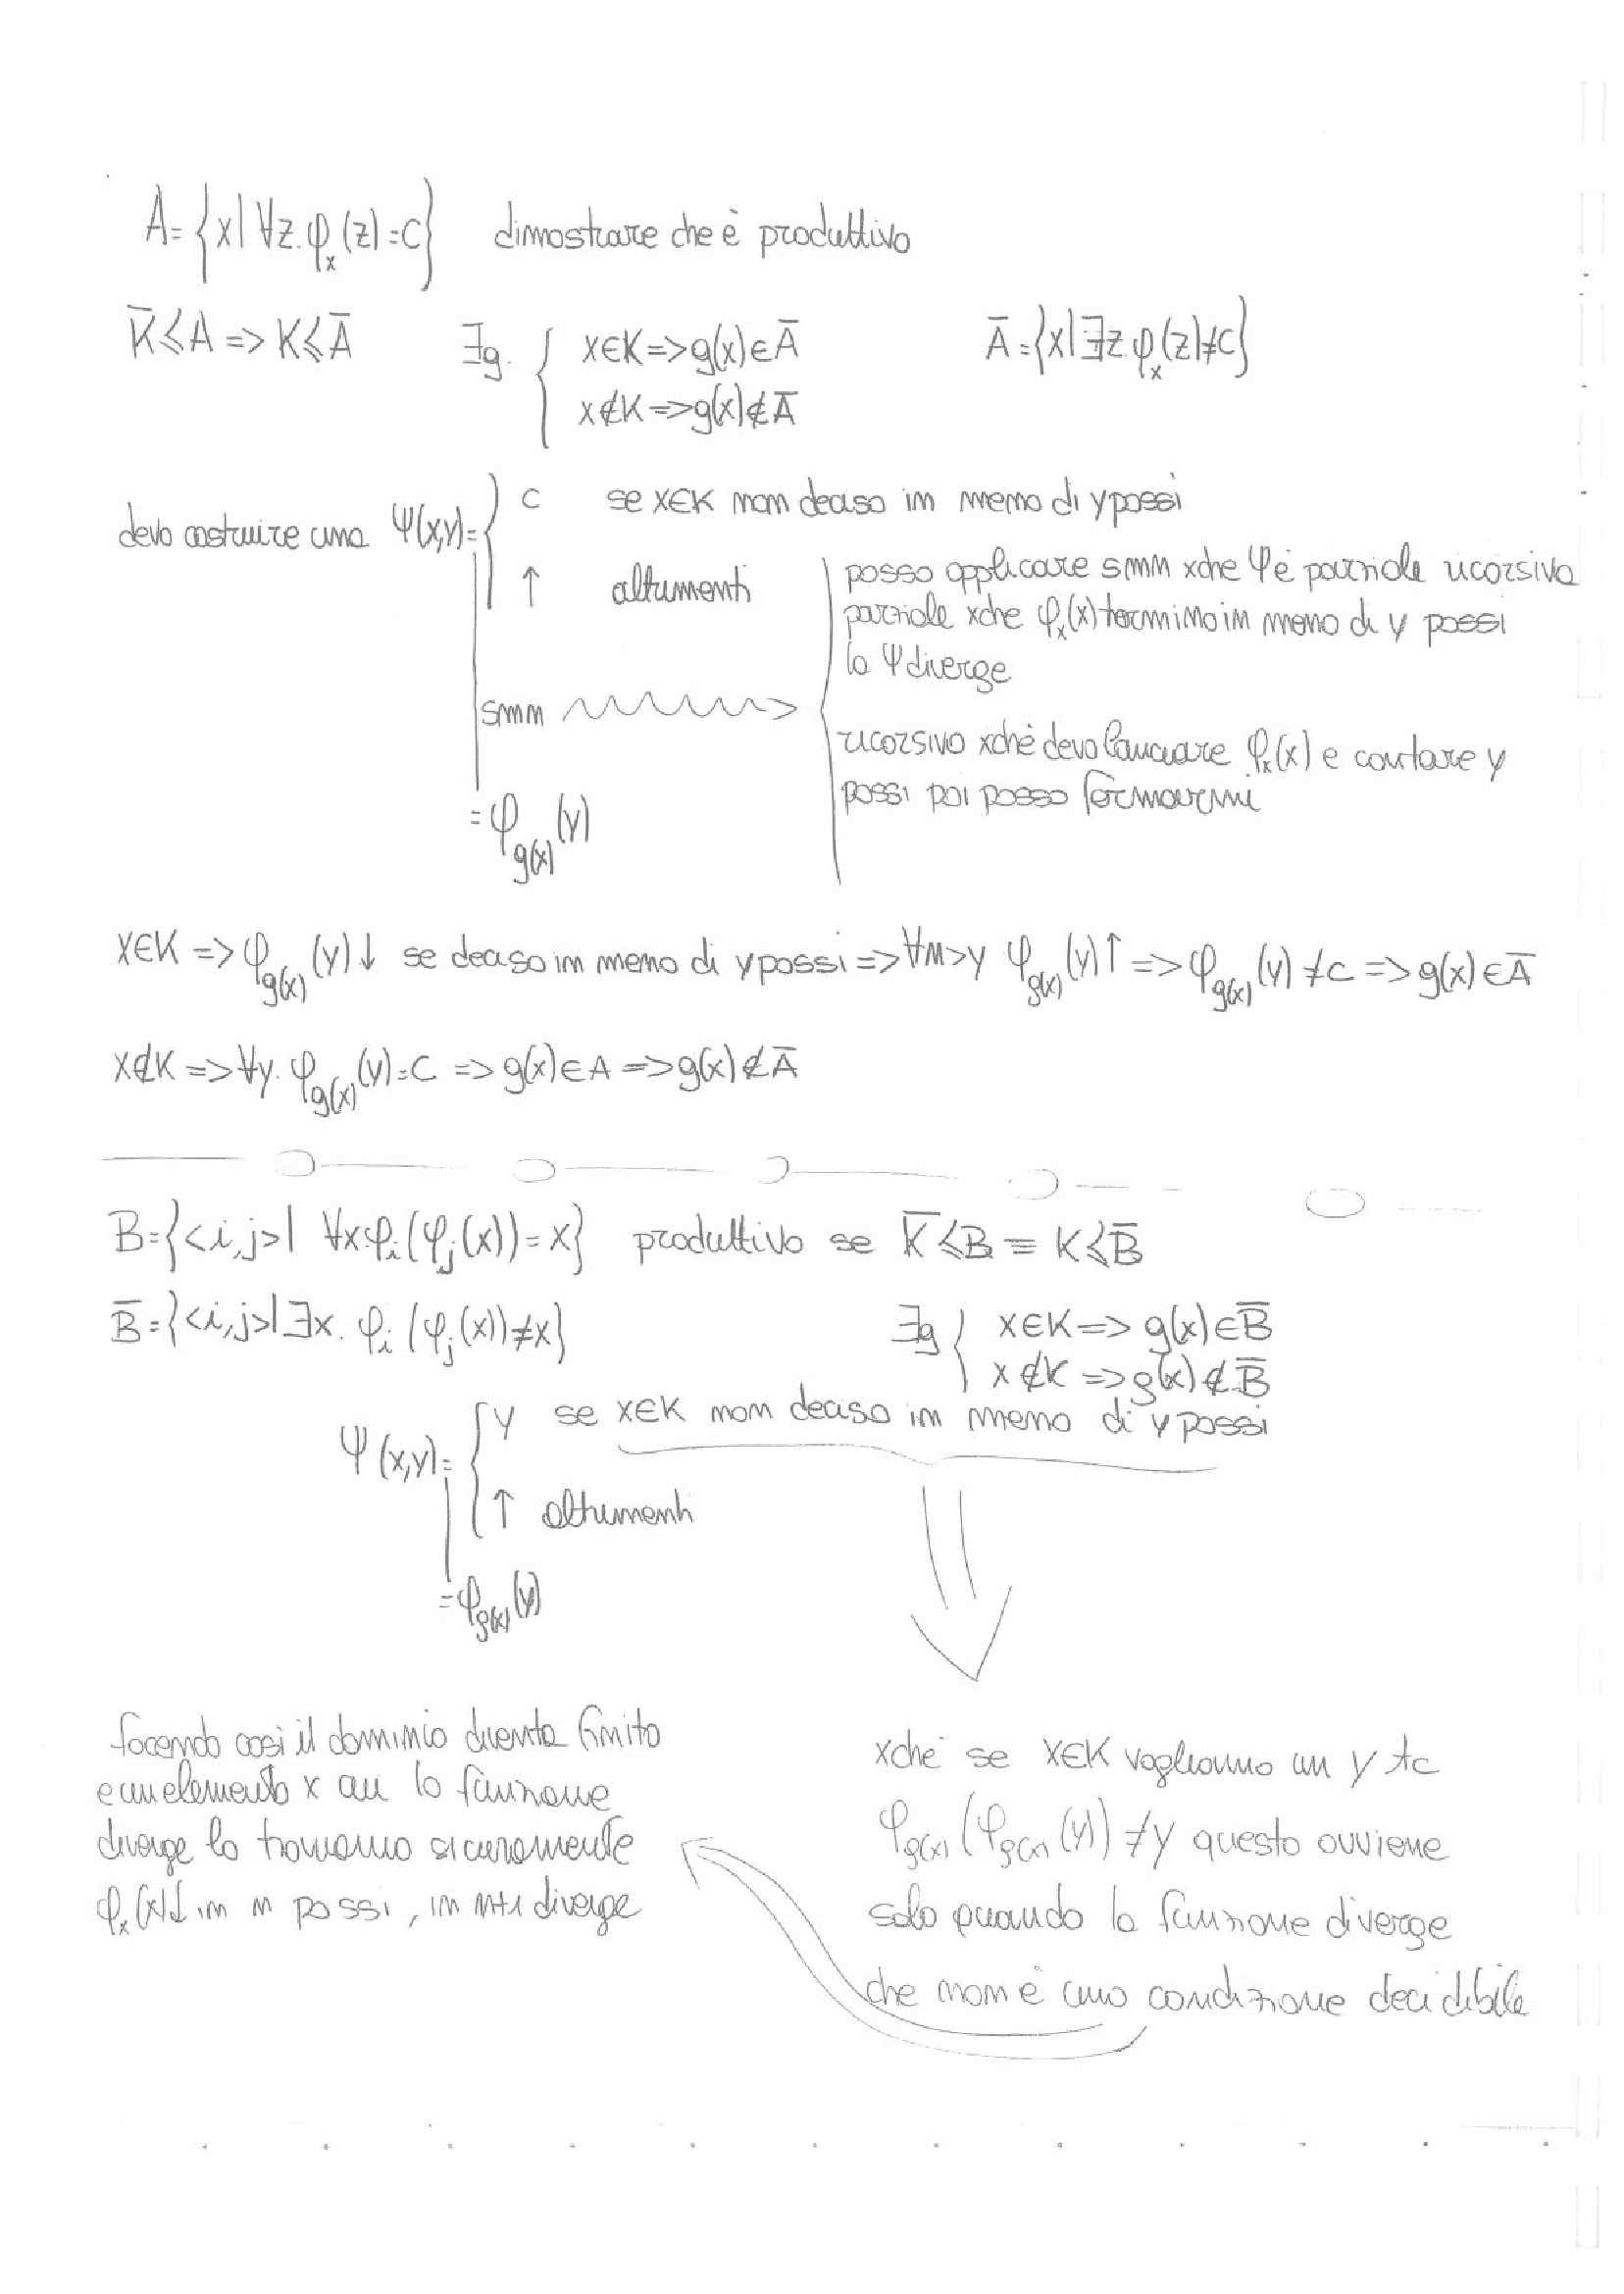 A = {x | ∀z. φₓ(z) = c} dimostrare che è produttivo
K̅ ≤ A => K ≤ A̅ ∃g. { x∈K => g(x)∈A̅ A̅ = {x | ∃z φₓ(z) ≠ c}
x∉K => g(x)∉A̅
devo costruire una ψ(x,y) = { c se x∈K non deciso in meno di y passi
↑ altrimenti
posso applicare smn xche ψ è parziale ricorsiva
parziale xche φₓ(x) termina in meno di y passi
la ψ diverge
smn
ricorsiva xchè devo lanciare φₓ(x) e contare y
passi poi posso fermarmi
= φ_g(x) (y)
x∈K => φ_g(x) (y)↓ se deciso in meno di y passi => ∀n>y φ_g(x) (y)↑ => φ_g(x) (y) ≠ c => g(x)∈A̅
x∉K => ∀y. φ_g(x) (y) = c => g(x)∈A => g(x)∉A̅
B = {<i,j> | ∀x φᵢ(φⱼ(x)) = x} produttivo se K̅ ≤ B ≡ K ≤ B̅
B̅ = {<i,j> | ∃x. φᵢ(φⱼ(x)) ≠ x} ∃g { x∈K => g(x)∈B̅
x∉K => g(x)∉B̅
ψ(x,y) = { y se x∈K non deciso in meno di y passi
↑ altrimenti
= φ_g(x) (y)
facendo così il dominio diventa finito
e un elemento x cui la funzione
diverge lo troviamo sicuramente
φₓ(x)↓ in n passi, in n+1 diverge
xchè se x∈K vogliamo un y tc
φ_g(x) (φ_g(x) (y)) ≠ y questo avviene
solo quando la funzione diverge
che non è una condizione decidibile